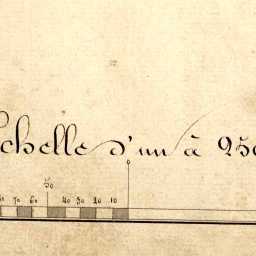 chelle d'un à 250
50
70 60 40 30 20 10